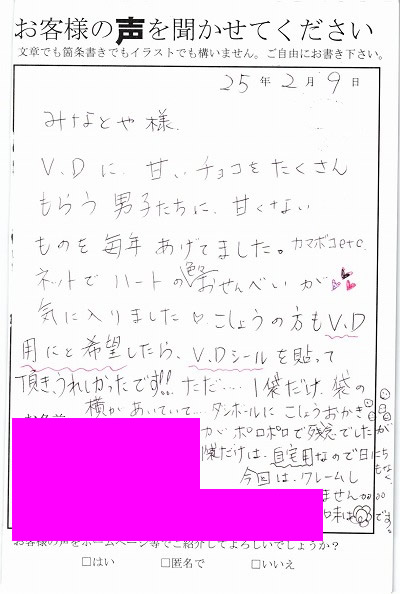 お客様の声を聞かせてください
文章でも箇条書きでもイラストでも構いません。ご自由にお書き下さい。
25年2月9日
みなとや様.
V.Dに、甘いチョコをたくさん
もらう男子たちに、甘くない
ものを毎年あげてました。カマボコetc.
ネットでハートの色おせんべいが
気に入りました♡.こしょうの方もV.D
用にと希望したら、V.Dシールを貼って
頂き、うれしかったです!!ただ…1袋だけ、袋の
横があいていて…ダンボールにこしょうおかき
がポロポロで残念でしたが
袋だけは、自宅用なので日にち
もなく、
今回は、クレームし
ません
味は です。
お客様の声をホームページ等でご紹介してよろしいでしょうか?
□はい □匿名で □いいえ